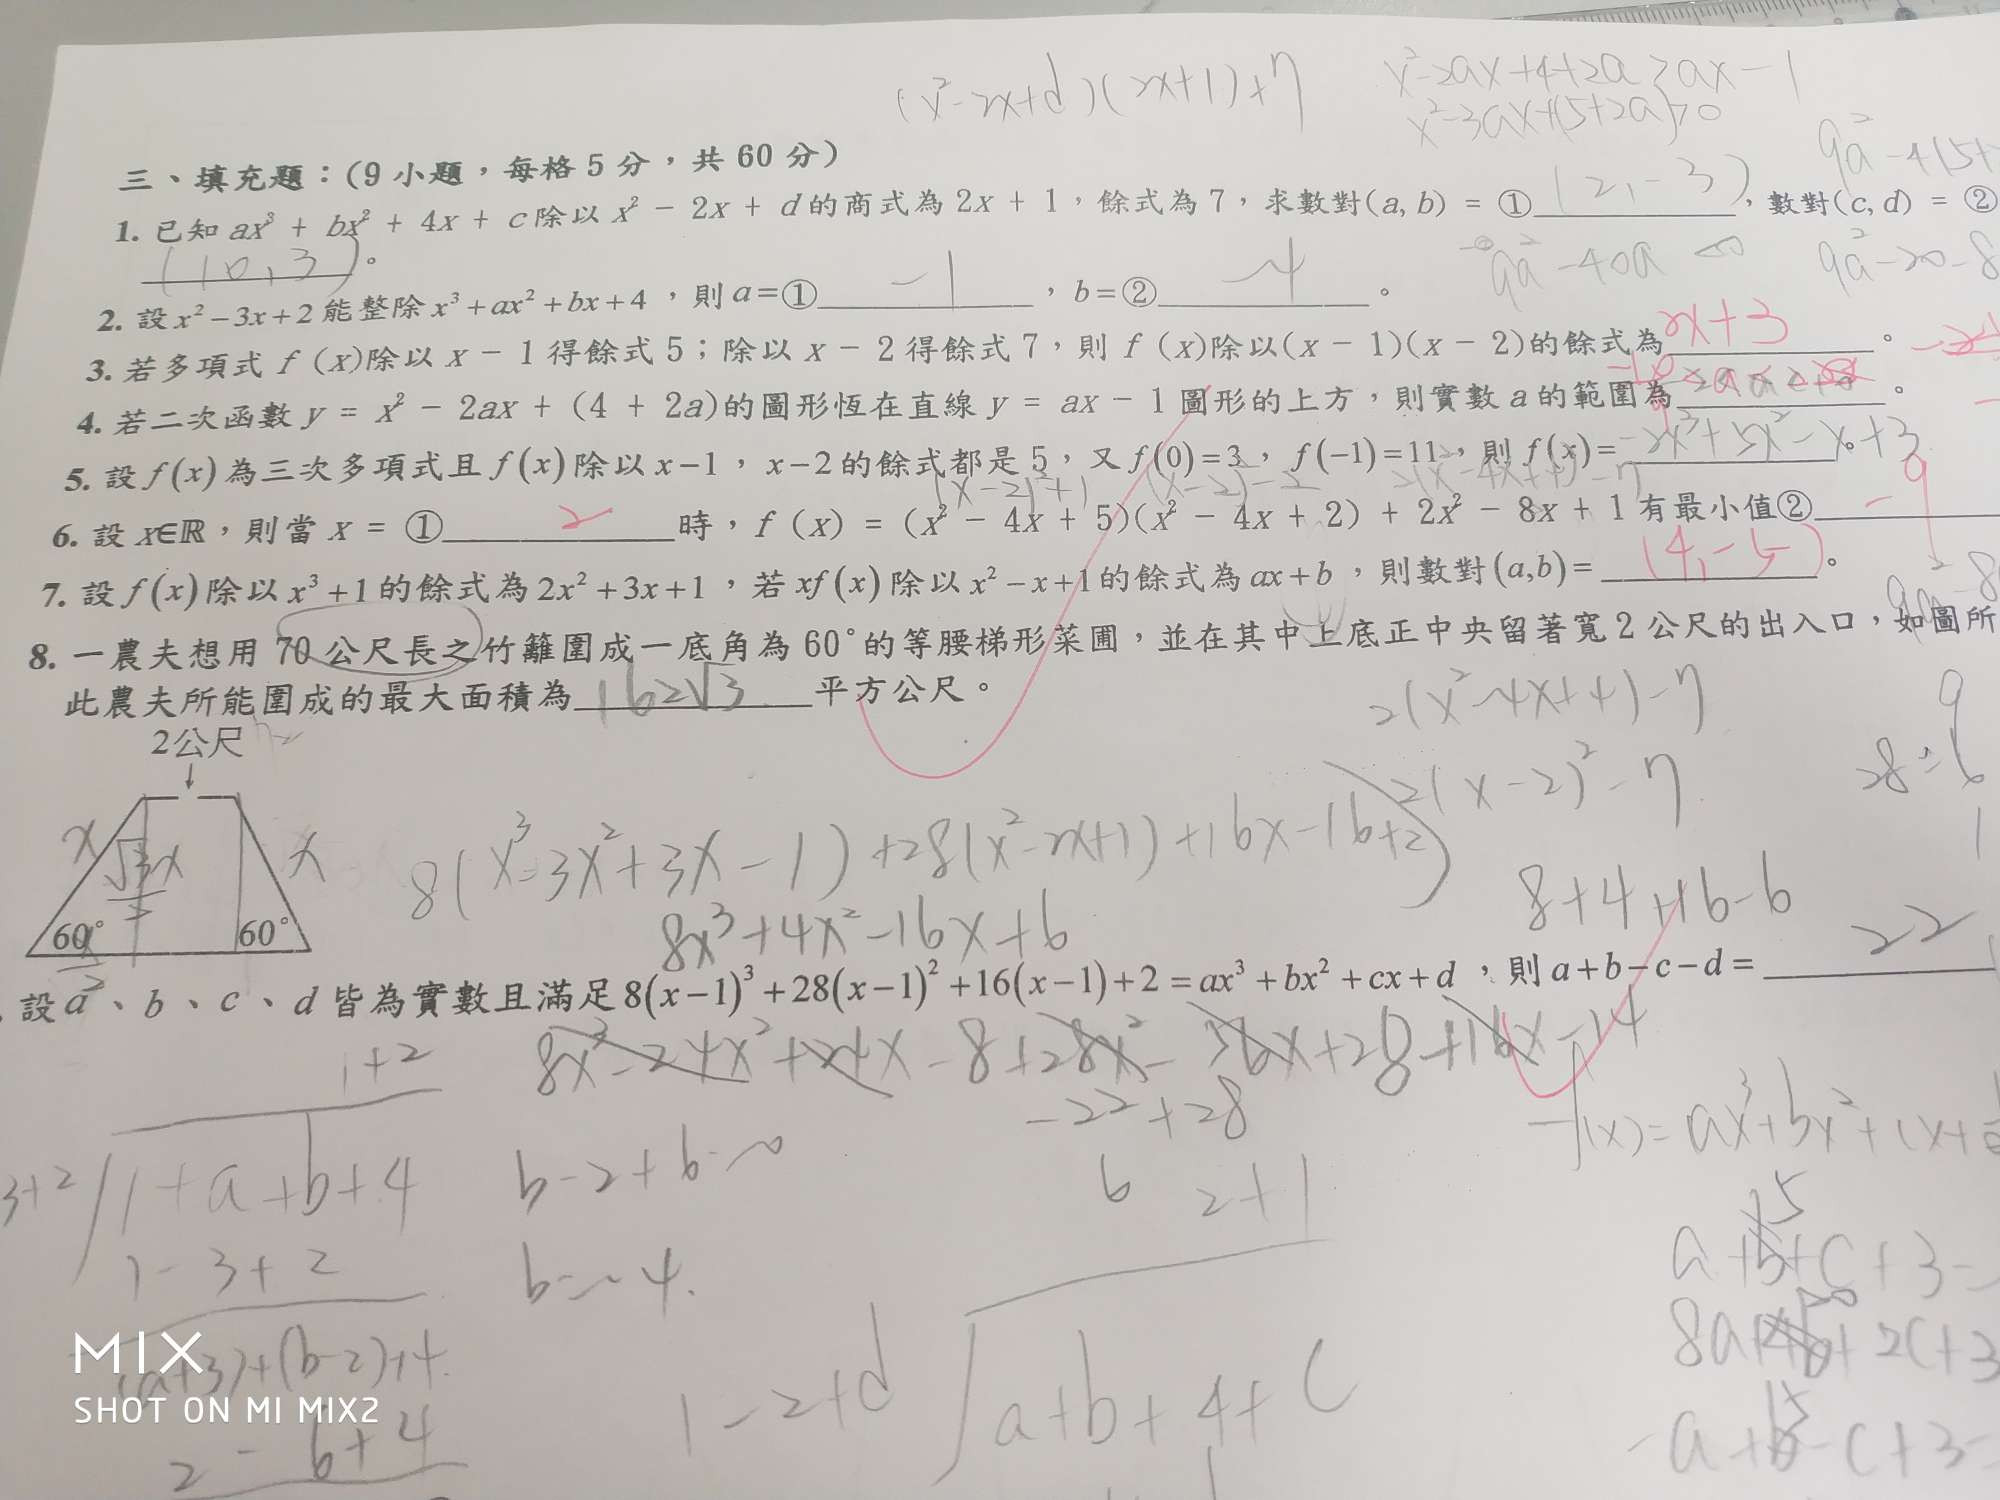 (x²-2x+d)(2x+1)+7
x²-2ax+4+2a>ax-1
x²-3ax+(5+2a)>0
三、填充題：(9 小題，每格 5 分，共 60 分)
9a²-4(5+
1. 已知 ax³ + bx² + 4x + c 除以 x² - 2x + d 的商式為 2x + 1，餘式為 7，求數對(a, b) = ① (2,-3) ，數對(c, d) = ②
(10,3) 。
9a²-40a
9a²-20-8
2. 設 x²-3x+2 能整除 x³+ax²+bx+4 ，則 a=① -1 ，b=② -4 。
3. 若多項式 f (x)除以 x - 1 得餘式 5；除以 x - 2 得餘式 7，則 f (x)除以(x - 1)(x - 2)的餘式為 2x+3 。
4. 若二次函數 y = x² - 2ax + (4 + 2a)的圖形恆在直線 y = ax - 1 圖形的上方，則實數 a 的範圍為 。
5. 設 f(x) 為三次多項式且 f(x) 除以 x-1，x-2 的餘式都是 5，又 f(0)=3，f(-1)=11，則 f(x)= -2x³+5x²-x+3 。
6. 設 x∈ℝ，則當 x = ① 2 時，f (x) = (x² - 4x + 5)(x² - 4x + 2) + 2x² - 8x + 1 有最小值② -9
7. 設 f(x) 除以 x³+1 的餘式為 2x²+3x+1，若 xf(x) 除以 x²-x+1 的餘式為 ax+b，則數對(a,b)= (4,-5) 。
8. 一農夫想用 70 公尺長之竹籬圍成一底角為 60°的等腰梯形菜圃，並在其中上底正中央留著寬 2 公尺的出入口，如圖所
此農夫所能圍成的最大面積為 162√3 平方公尺。
2(x²-4x+4)-7
2公尺
2(x-2)²-7
x
√3x
x
60°
60°
8(x³-3x²+3x-1)+28(x²-2x+1)+16x-16+2
8x³+4x²-16x+6
8+4+16-6
設 a、b、c、d 皆為實數且滿足 8(x-1)³+28(x-1)²+16(x-1)+2=ax³+bx²+cx+d，則 a+b-c-d= 22
8x³-24x²+24x-8+28x²-56x+28+16x-14
1+2
-22+28
6
3+2
1+a+b+4
1-3+2
(a+3)+(b-2)+4
2-6+4
b-2+6=0
b=-4.
2+1
1-2+d
a+b+4+c
a+b+c+3=
MIX
SHOT ON MI MIX2